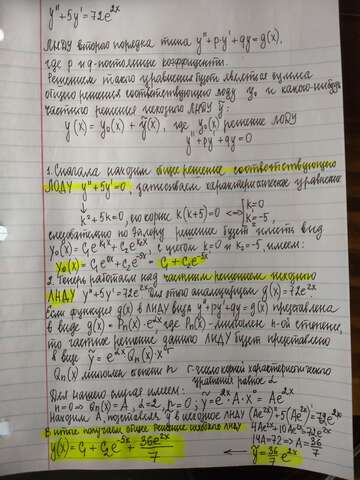 y'' + 5y' = 72e^{2x}
ЛНДУ второго порядка типа y'' + p·y' + qy = g(x),
где p и q - постоянные коэффициенты.
Решением такого уравнения будет являться сумма
общего решения соответствующего лоду y₀ и какого-нибудь
частного решения исходного ЛНДУ ỹ:
y(x) = y₀(x) + ỹ(x), где y₀(x) решение ЛОДУ
y'' + py' + qy = 0
1. Сначала находим общее решение соответствующего
ЛОДУ y'' + 5y' = 0, записываем характеристическое уравнение
↓
k² + 5k = 0, его корни: k(k+5) = 0 <=> [k₁ = 0 k₂ = -5,
следовательно по решение будет иметь вид
y₀(x) = C₁e^{k₁x} + C₂e^{k₂x}, с учетом k₁ = 0 и k₂ = -5, имеем:
y₀(x) = C₁e^{0x} + C₂e^{-5x} = C₁ + C₂e^{-5x}
2. Теперь работаем над частным решением исходного
ЛНДУ y'' + 5y' = 72e^{2x} для этого анализируем g(x) = 72e^{2x}.
Если функция g(x) в ЛНДУ вида y'' + py' + qy = g(x) представлена
в виде g(x) = Pn(x)·e^{αx} где Pn(x) - многочлен n-ой степени,
то частное решение данного ЛНДУ будет представлено
в виде ỹ = e^{αx}·Qn(x)·x^r
Qn(x) многочлен степени n r - число корней характеристического
уравнения равное α
Для нашего случая имеем:
n = 0 => Qn(x) = A, α = 2, r = 0; ỹ = e^{2x}·A·x⁰ = Ae^{2x}
Находим A, подставляя ỹ в исходное лнду (Ae^{2x})'' + 5(Ae^{2x})' = 72e^{2x}
4Ae^{2x} + 10Ae^{2x} = 72e^{2x}
В итоге получаем общее решение исходного лнду
14A = 72 => A = 36/7
y(x) = C₁ + C₂e^{-5x} + 36e^{2x}/7 ← ỹ = 36/7 e^{2x}